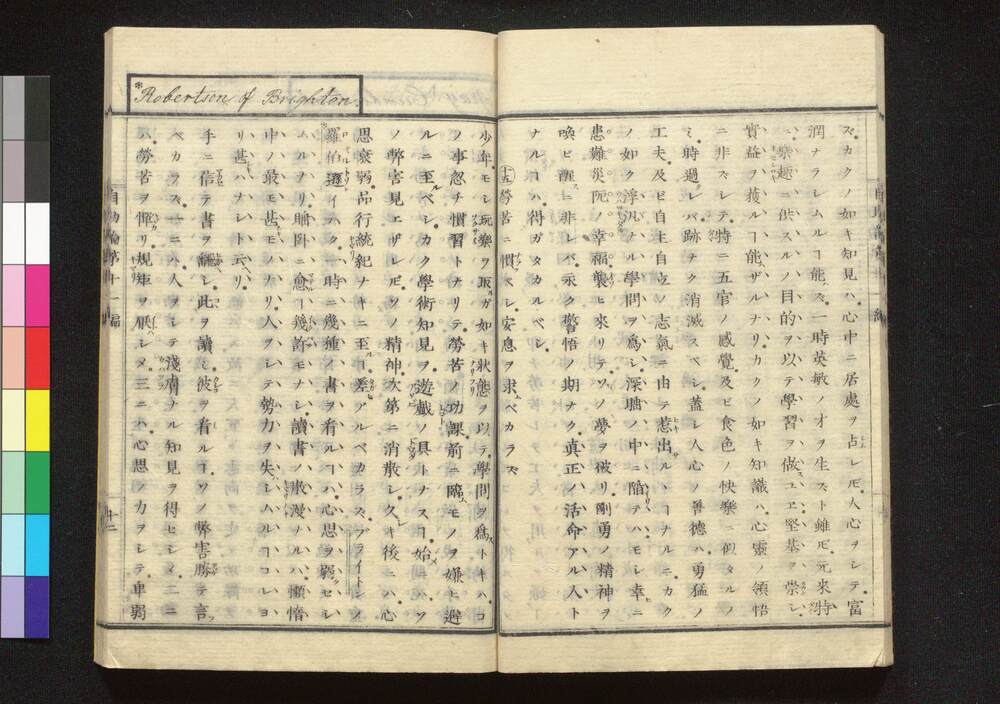 ズ。カクノ如キ知見ハ。心中ニ居處ヲ占レ𪜈。人心ヲシテ富
潤ナラシムルヿ能ハズ。一時英敏ノ才ヲ生スト雖𪜈。元來特
ニ樂趣ニ供スルノ目的ヲ以テ學習ヲ做スユヱ。堅基ヲ崇シ。
實益ヲ獲ルヿ能ハザルナリ。カクノ如キ知識ハ。心靈ノ領悟
ニ非ズシテ。特ニ五官ノ感覺。及ビ食色ノ快樂ニ似タルノ
ミ。時過レバ跡ナク消滅スベシ。蓋シ人心ノ善德ハ。勇猛ノ
工夫。及ビ自主自立ノ志氣ニ由テ惹出サルヽヿナルニ。カク
ノ如ク浮凡ナル學問ヲ爲シ。深睡ノ中ニ陥テハ。モシ幸ニ
患難災阨ノ。幸福襲ヒ來リテ。ソノ夢ヲ破リ。剛勇ノ精神ヲ
喚ビ醒スニ非レバ。永ク警悟ノ期ナク。眞正ノ活命アル人ト
ナルヿハ。得ガタカルベシ。
十五 勞苦ニ慣ベシ。安息ヲ求ベカラズ
*Robertson of Brighton.
少年モシ玩樂ヲ取ルガ如キ狀態ヲ以テ。學問ヲ爲ストキハ。コ
ノ事忽チ慣習トナリテ。勞苦ノ功課。前ニ臨ムモノヲ嫌ヒ避
ルニ至ルベシ。カク學術知見ヲ。遊戲ノ具トナスヿ。始メハソ
ノ弊害見エザレ𪜈。ソノ精神次第ニ消散シ。久キ後ニハ。心
思衰弱。品行統紀ナキニ至ルヿ。差アルベカラズ。ブライトンノ
羅伯遜イハク。時ニ幾種ノ書ヲ看ルヿハ。心思ヲ弱クセシ
ムルノリ。睡臥ニ愈ルヿ幾許モナシ。讀書ノ散漫ナルハ。懶惰
中ノ最モ甚キモノナリ。人ヲシテ勢力ヲ失ハシムルヿ。コレヨ
リ甚キハナシト云リ。
手ニ信テ書ヲ繙シ。此ヲ讀ミ彼ヲ看ルヿ。ソノ弊害勝テ言フ
ベカラズ。一ニハ。人ヲシテ淺膚ナル知見ヲ得セシメ。二ニ
ハ。勞苦ヲ憚リ。規矩ヲ厭シメ。三ニハ。心思ノ力ヲシテ卑弱
自助論第十一編
十三